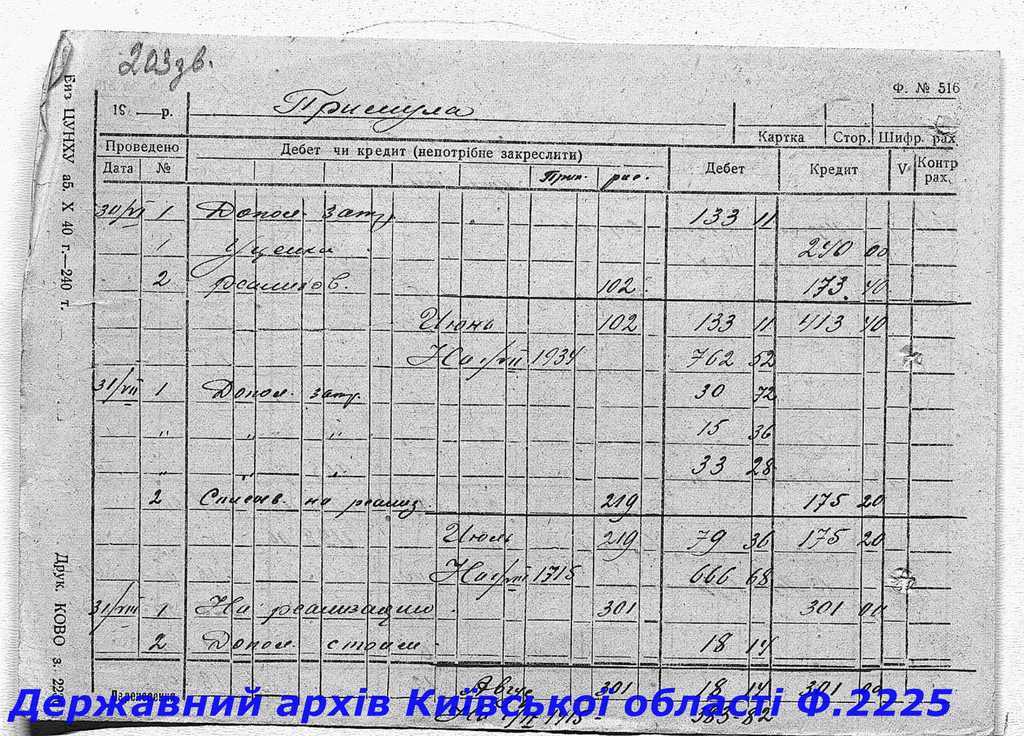 203 зв.
Ф. № 516
19 __ р. Примула
Картка Стор. Шифр. рах.
Проведено Дебет чи кредит (непотрібне закреслити) Дебет Кредит V Контр рах.
Дата № Прих. рас.
30/VI 1 Допол. затр. 133 11
1 Уценка 240 00
2 реализов. 102 173 40
Июнь 102 133 11 413 40
На 1/VII 1934 762 52
31/VII 1 Допол. затр. 30 72
" " " 15 36
" " " 33 28
2 Списыв. на реализ. 219 175 20
Июль 219 79 36 175 20
На 1/VIII 1715 666 68
31/VIII 1 На реализацию 301 301 00
2 Допол. стоим. 18 14
Август 301 18 14 301 00
383-82
Биз ЦУНХУ аб. X 40 г.—240 т.
Друк. КОВО з. 22
Державний архів Київської області Ф.2225